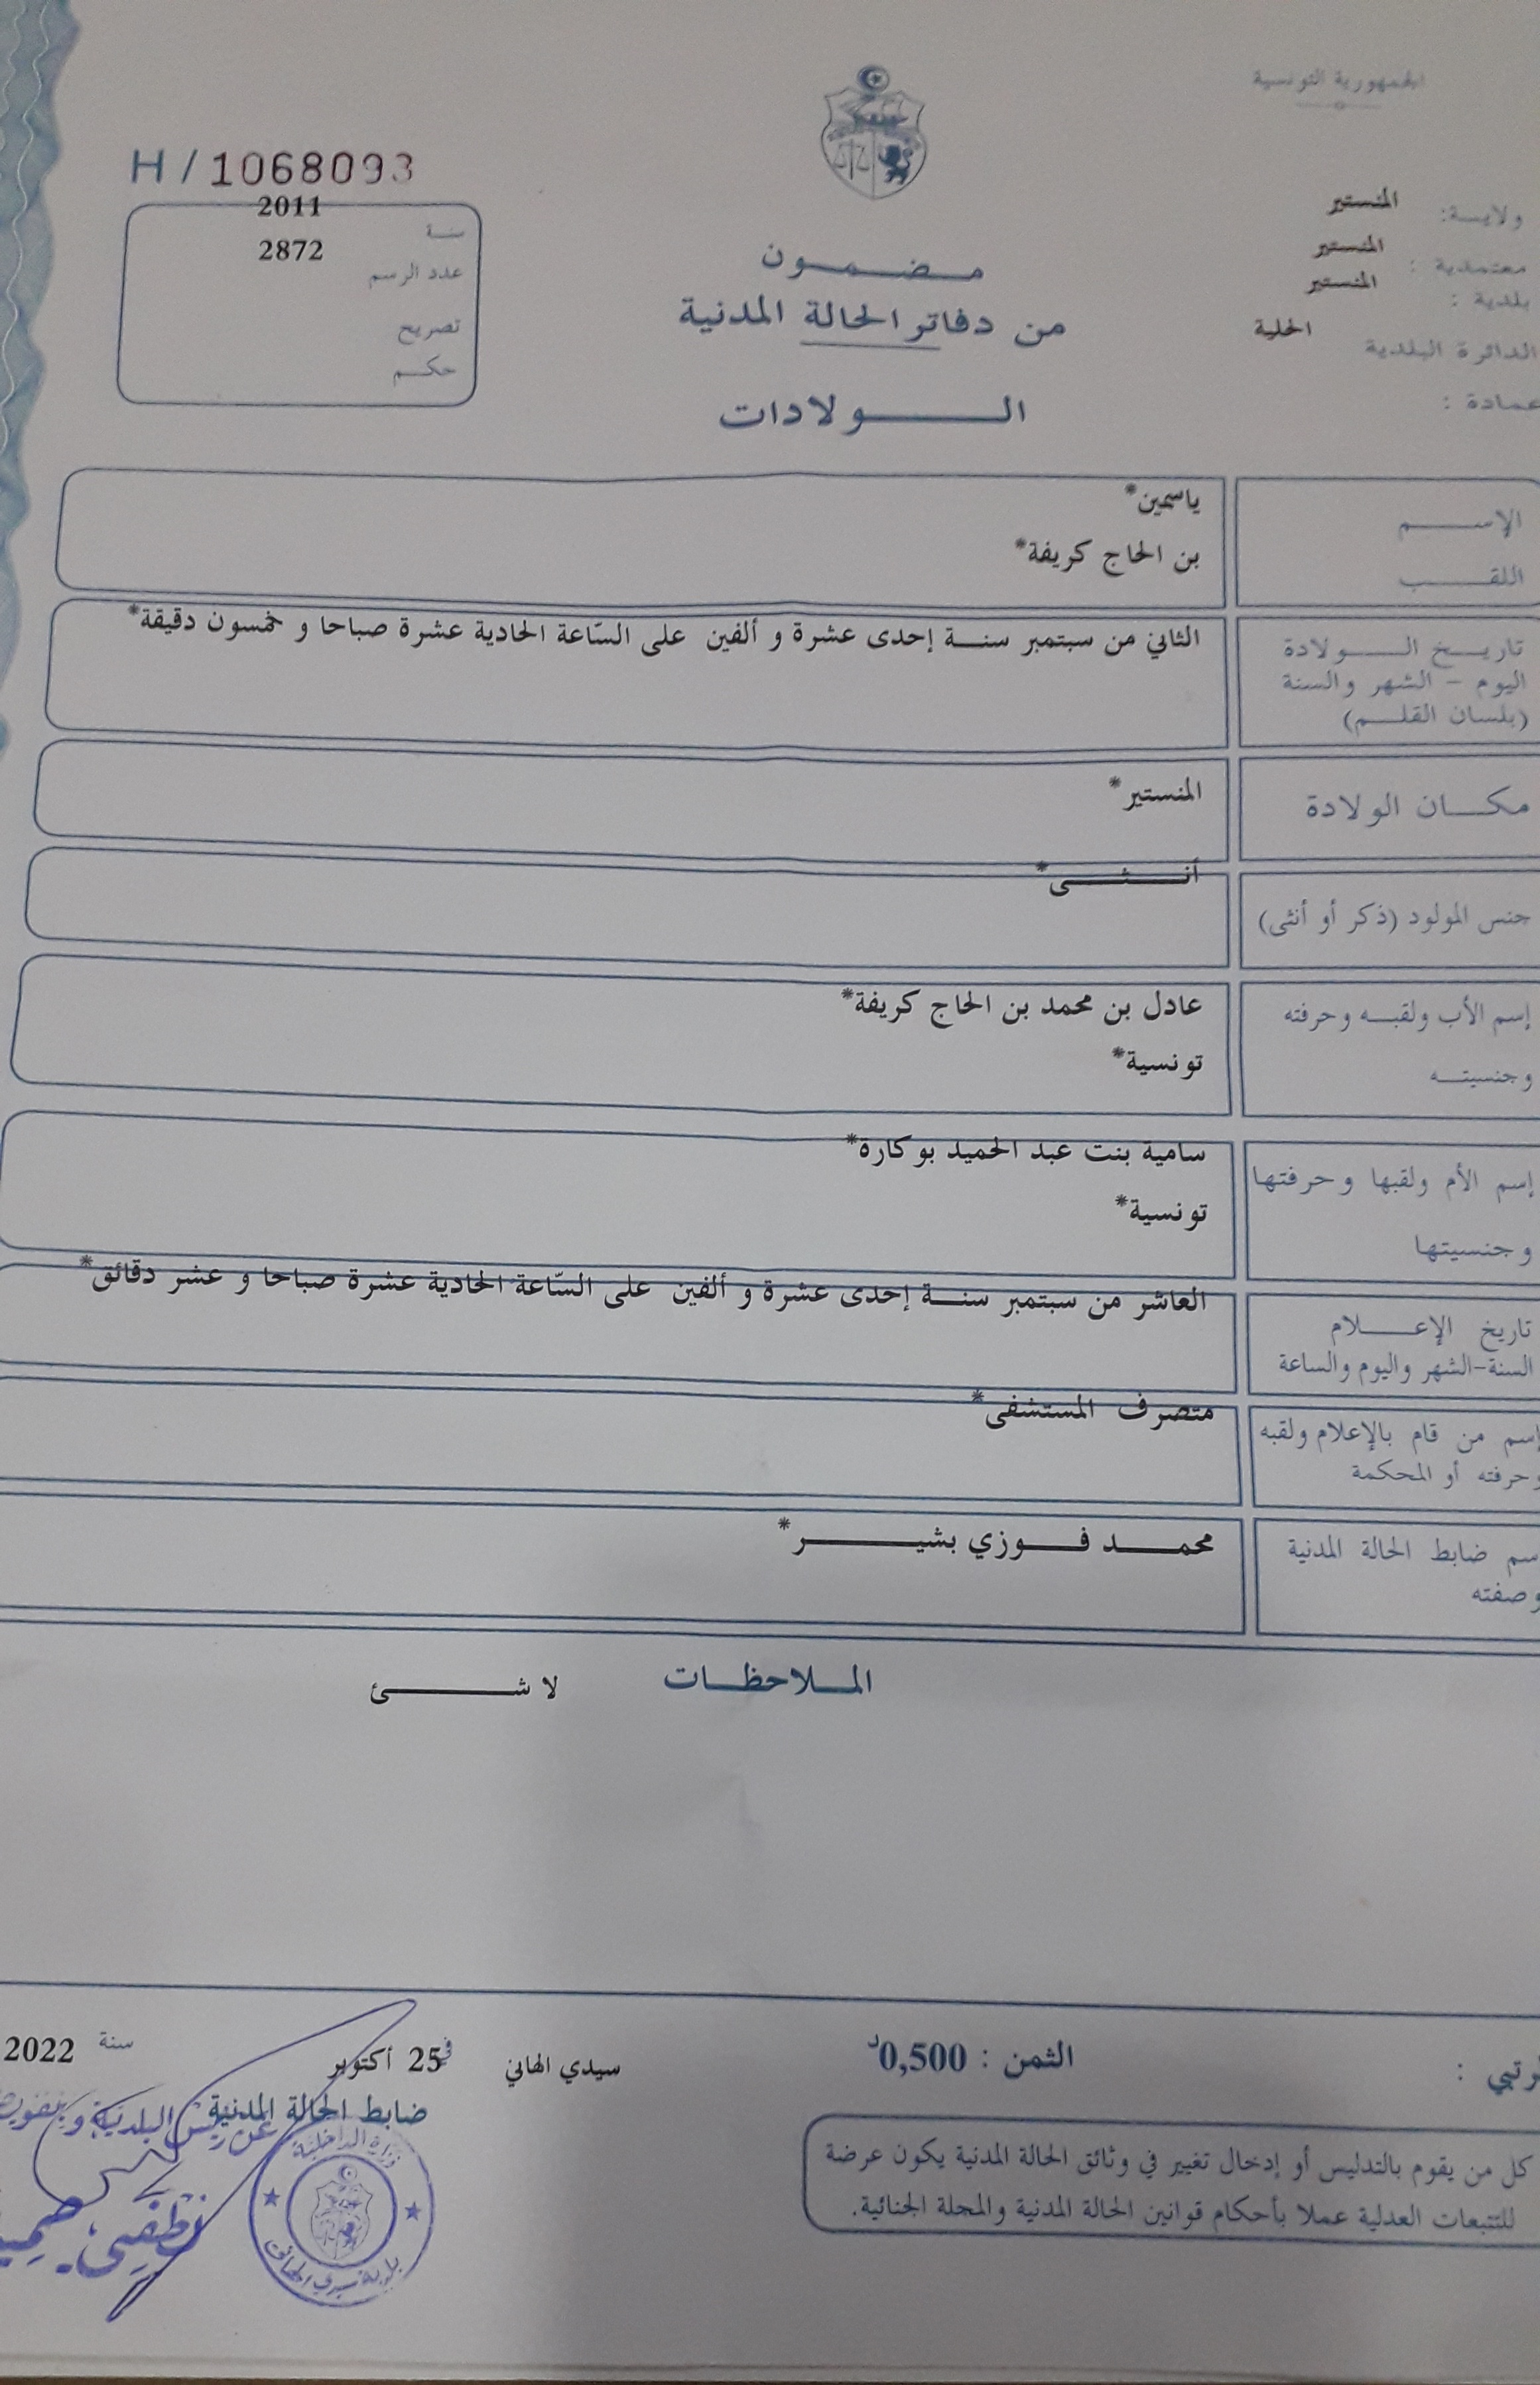 الجمهورية التونسية
ولايـــة: المنستير
معتمدية : المنستير
بلدية : المنستير
الدائرة البلدية المحلية
عمادة :
H / 1068093
سنـة 2011
عدد الرسم 2872
تصريح
حكـم
مـضـمـون
من دفاتر الحالة المدنية
الـولادات
الإسـم ياسمين*
اللقـب بن الحاج كريفة*
تاريـخ الـولادة الثاني من سبتمبر سنـة إحدى عشرة و ألفين على السّاعة الحادية عشرة صباحا و خمسون دقيقة*
اليوم - الشهر والسنة
(بلسان القلـم)
مكـان الولادة المنستير*
جنس المولود (ذكر أو أنثى) أنـثـى*
إسم الأب ولقبـه وحرفته عادل بن محمد بن الحاج كريفة*
وجنسيتـه تونسية*
إسم الأم ولقبها وحرفتها سامية بنت عبد الحميد بوكارة*
وجنسيتها تونسية*
تاريخ الإعـلام العاشر من سبتمبر سنـة إحدى عشرة و ألفين على السّاعة الحادية عشرة صباحا و عشر دقائق*
السنة-الشهر واليوم والساعة
إسم من قام بالإعلام ولقبه متصرف المستشفى*
وحرفته أو المحكمة
سم ضابط الحالة المدنية محمـد فـوزي بشيـر*
وصفته
المـلاحظـات لا شـئ
الثمن : 0,500د
سيدي الهاني في 25 أكتوبر سنة 2022
ضابط الحالة المدنية
عن رئيس البلدية و بتفويض
وزارة الداخلية
بلدية سيدي الهاني
كل من يقوم بالتدليس أو إدخال تغيير في وثائق الحالة المدنية يكون عرضة
للتتبعات العدلية عملا بأحكام قوانين الحالة المدنية والمجلة الجنائية.